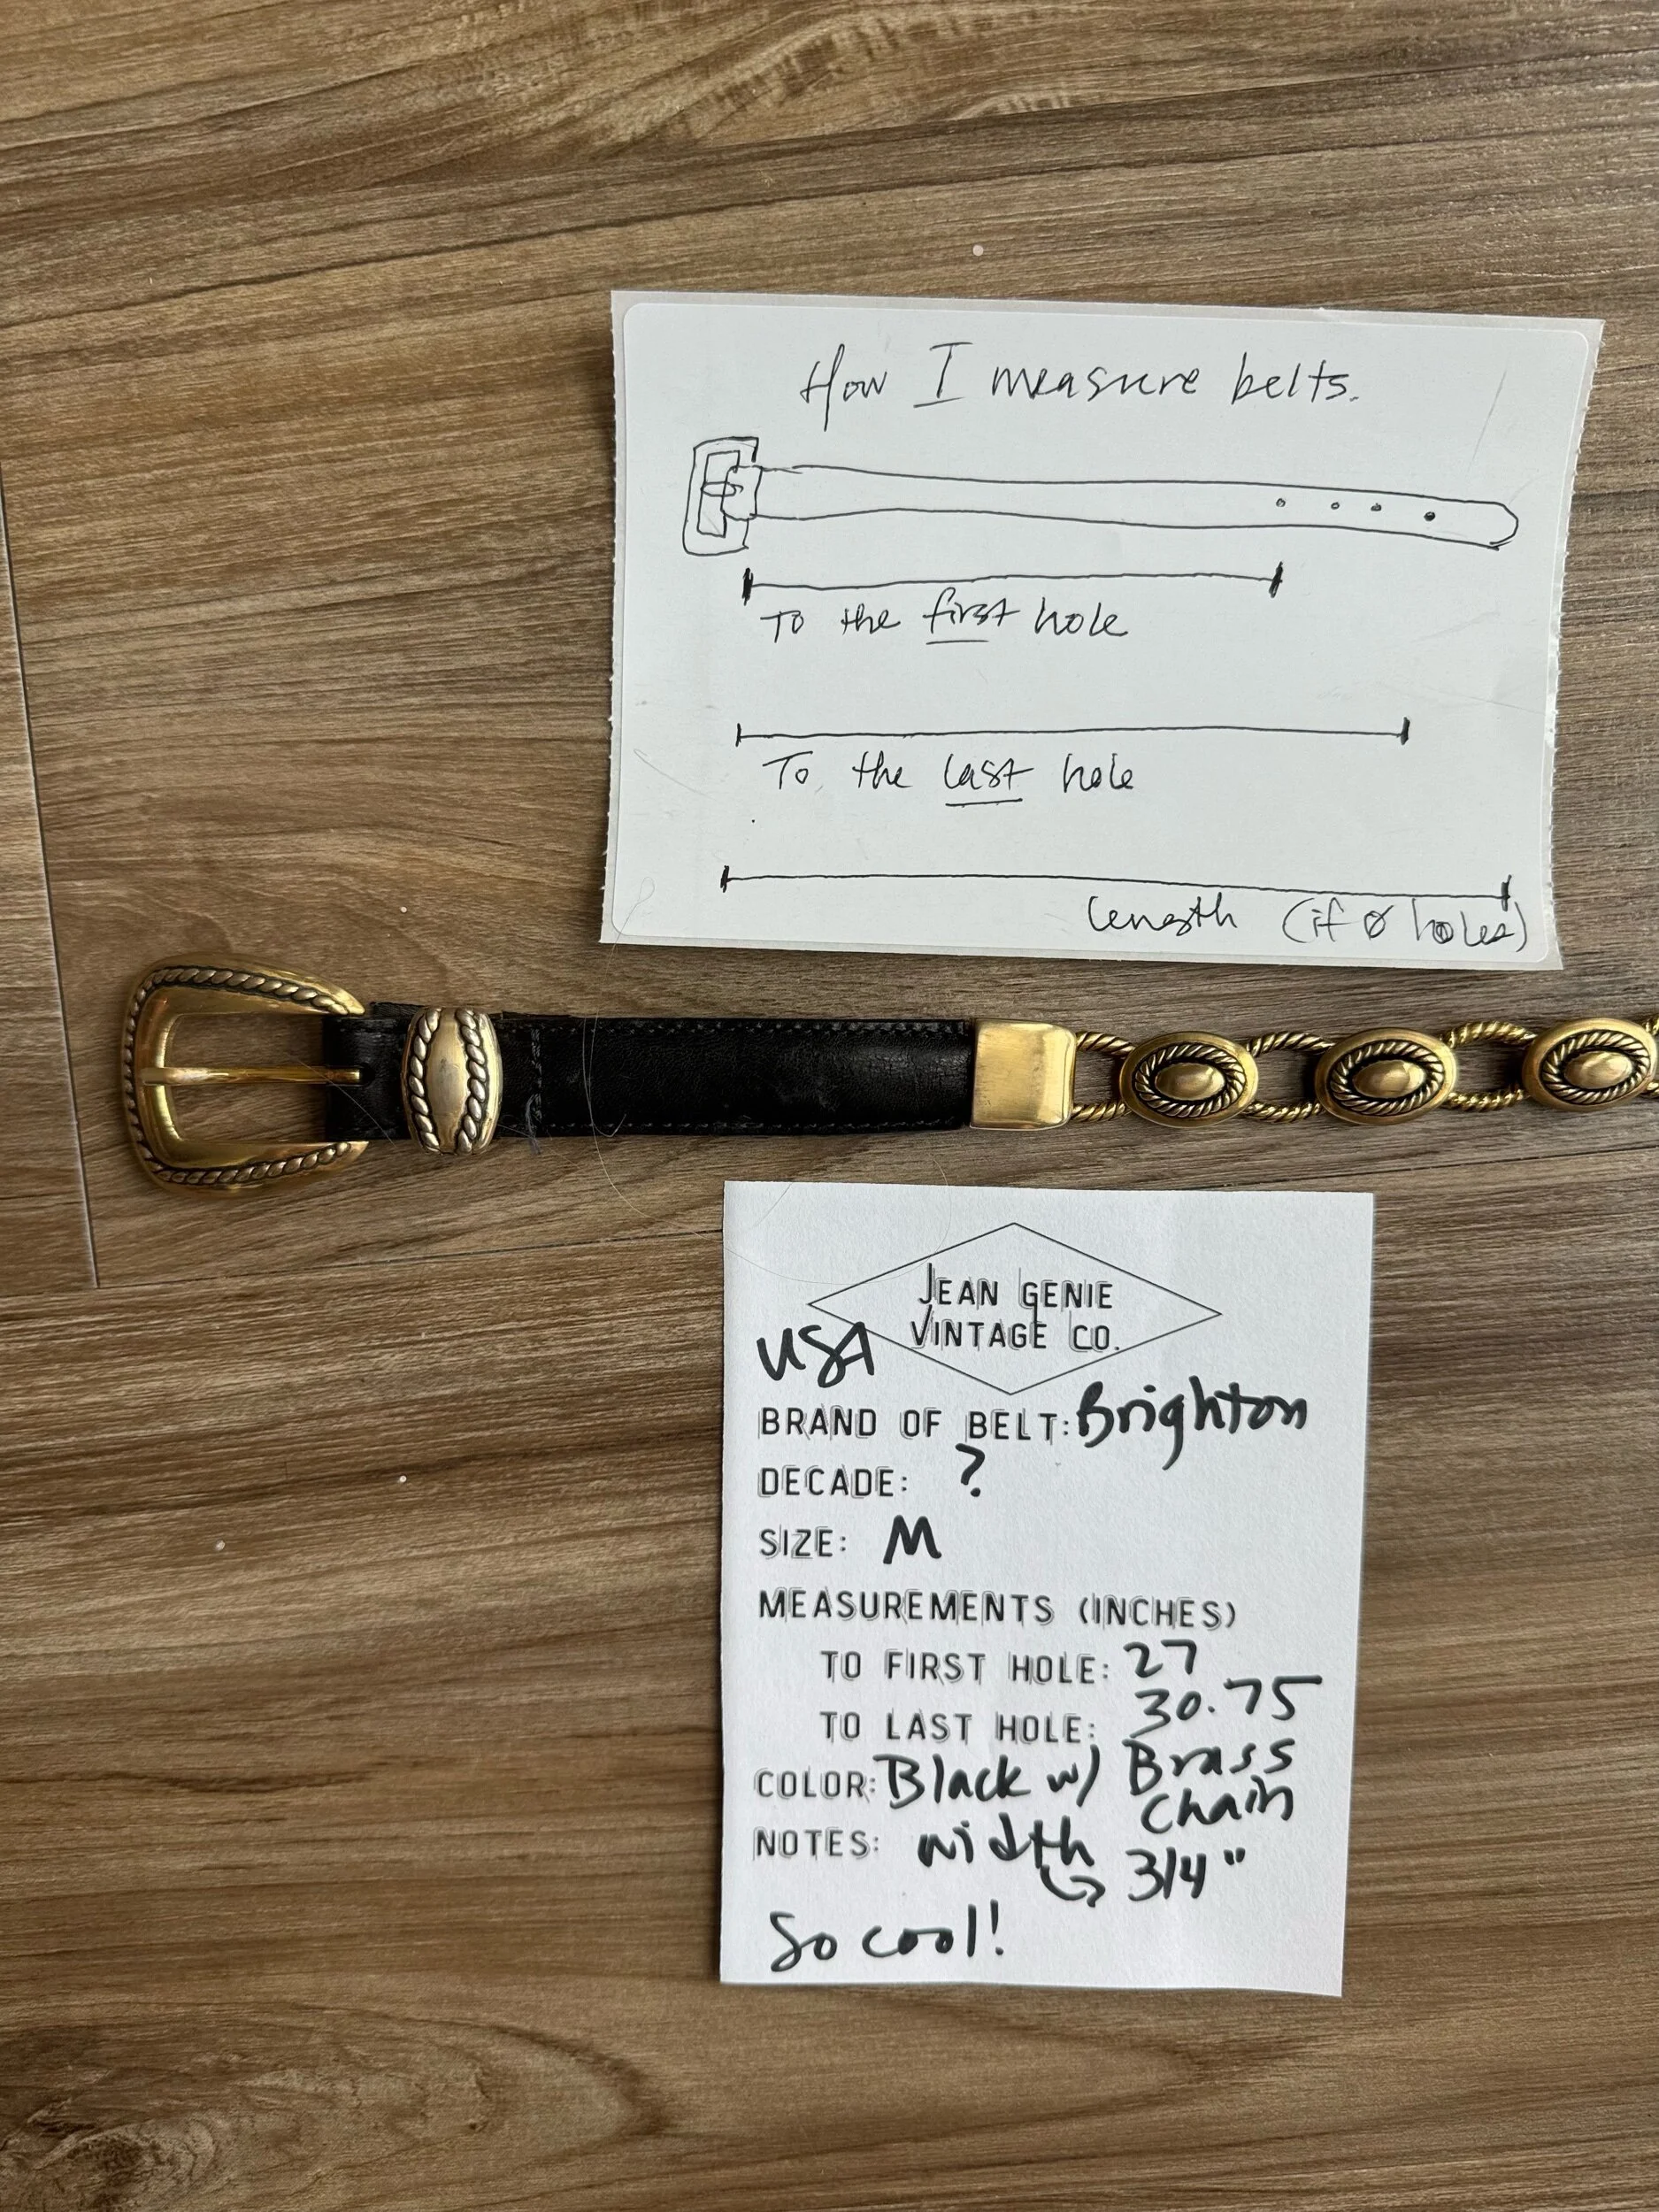 How I measure belts.
To the first hole
To the last hole
length (if 0 holes)
JEAN GENIE
VINTAGE CO.
USA
BRAND OF BELT: Brighton
DECADE: ?
SIZE: M
MEASUREMENTS (INCHES)
TO FIRST HOLE: 27
TO LAST HOLE: 30.75
COLOR: Black w/ Brass
Chain
NOTES: width
3/4"
So cool!